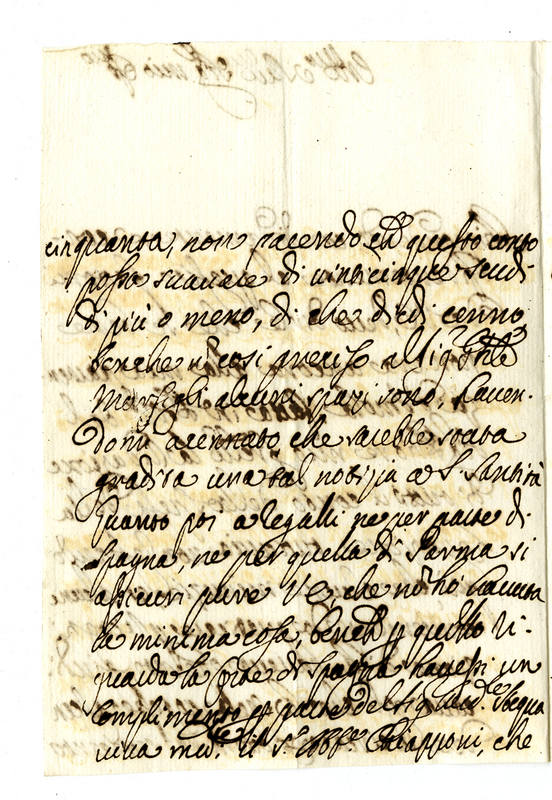 cinquanta, non facendo ch.e questo conto
possa svariare di vinticinque scudi
di più o meno, di che diedi cenno
benche n.o cosi preciso al Sig.r
Marsigli alcuni spazi sono, haven-
domi acennato che sarebbe stata
gradita una tal notizia a S. Santità
Quanto poi a regalli ne per parte di
Spagna, ne per quella di Parma si
assicuri pure V.E. che nō hò havuta
la minima cosa, bench.e p quello ri-
guarda la Corte di Spagna havessi un
complimento p parte del Sig. Acqua
viva med.o il S.r Abb.e Chiapponi, che